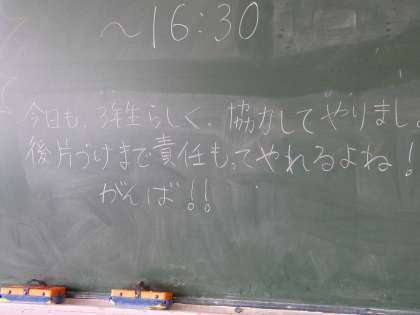 ～16:30
今日も、3年生らしく、協力してやりまし
後片づけまで責任もってやれるよね！
がんば！！